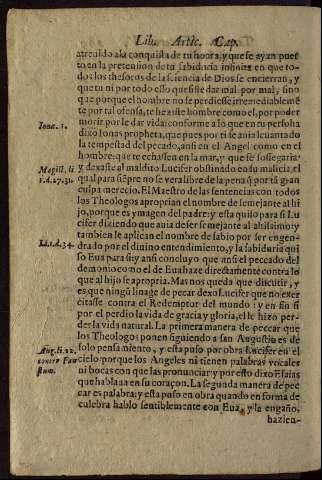 Lib. Artic. Cap.
atreuido ala conquista de tu honra, y que se ayan pues
to en la pretension de tu sabiduria infinita en que to-
dos los thesoros de la sciencia de Dios se encierran, y
que tu ni por todo esso quesiste dar mal por mal, sino
que porque el hombre no se perdiesse irremediableme͂
te por tal ofensa, te heziste hombre como el, por poder
morir por le dar vida: conforme a lo que en tu persona
dixo Ionas propheta, que pues por ti se auia leuantado
la tempestad del pecado, ansi en el Angel como en el
hombre: que te echassen en la mar, y que se sossegaria:
y dexaste al maldito Lucifer obstinado en su malicia, el
qual para siẽpre no se vera libre de la pena q̃ por tã gran
culpa merecio. El Maestro de las sentencias con todos
los Theologos aproprian el nombre de semejante al hi
jo, porque es ymagen del padre: y esta quiso para si Lu
cifer diziendo que auia de ser semejante al altissimo: y
tambien le aplican el nombre de sabio por ser engen-
drado por el diuino entendimiento, y la sabiduria qui
so Eua para si: y ansi concluyo que ansi el pecado del
demonio como el de Eua haze directamente contra lo
que al hijo se apropria. Mas nos queda que discutir, y
es que ningũ linage de pecar dexo Lucifer que no exer
citasse contra el Redemptor del mundo: y en fin si
por el perdio la vida de gracia y gloria, el le hizo per-
der la vida natural. La primera manera de peccar que
los Theologos ponen siguiendo a san Augustin es de
solo pensamiento, y esta puso por obra Lucifer en el
cielo: porque los Angeles ni tienen palabras vocales
ni bocas con que las pronunciar: y por esto dixo Esaias
que hablaua en su coraçon. La segunda manera de pec
car es palabra: y esta puso en obra quando en forma de
culebra hablo sensiblemente con Eua, y la engaño,
hazien-
Ionæ. 1.
Magist. li.
1.d.27.31.
Li.1.d.34.
Aug. li. 22.
contra Fau
stum.